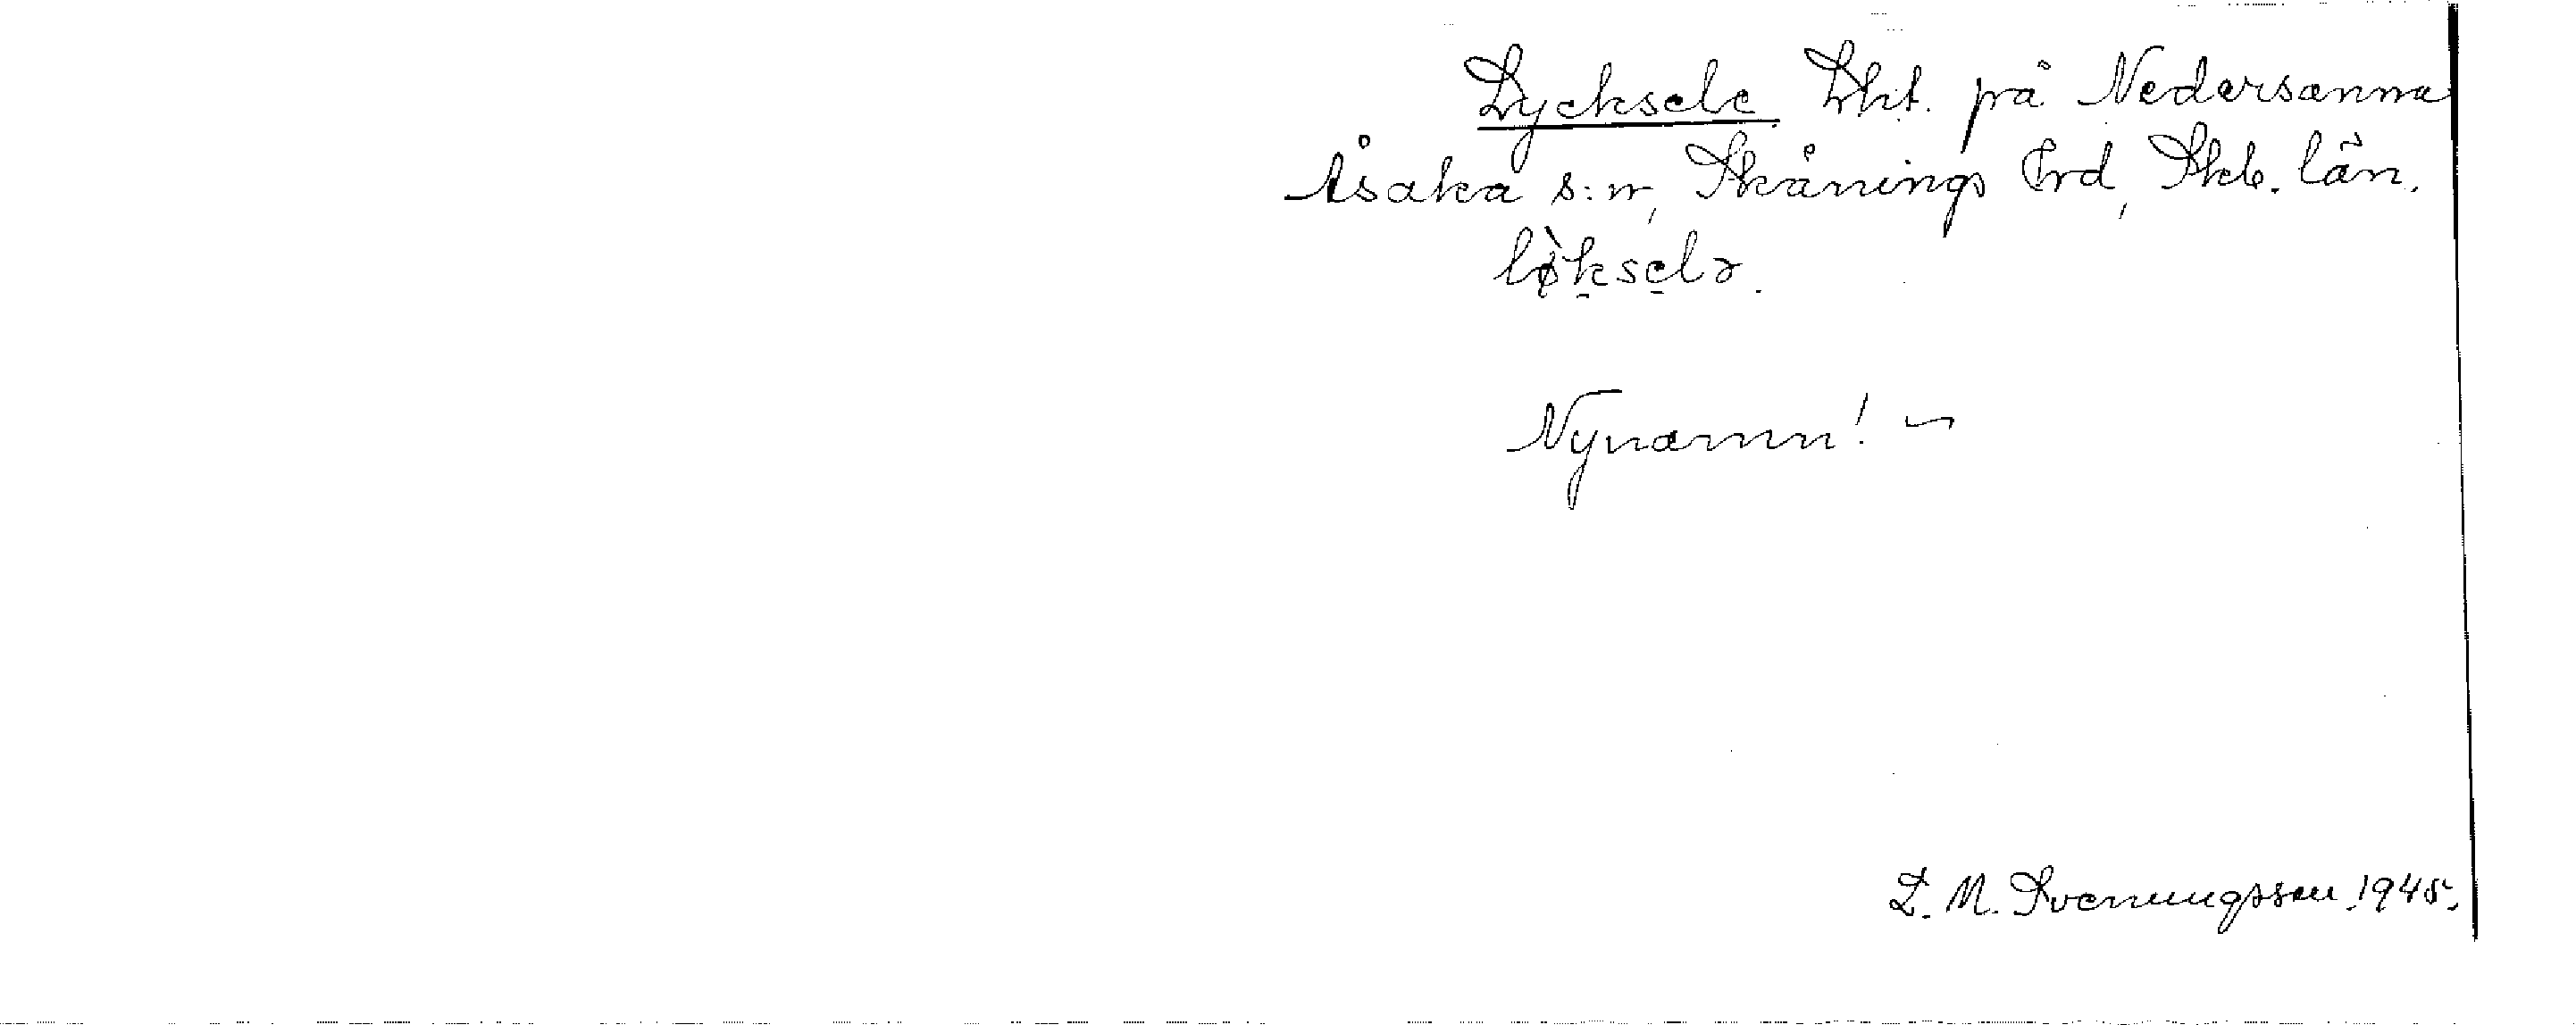 Lycksele. Lht. på Nedersanna
Åsaka s:n, Skånings hrd, Skb. län.
lø̀ksela.
Nynamn! ~
L. M. Svenungsson 1945.